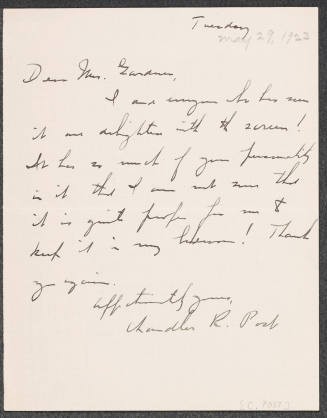 Tuesday
May 29, 1922
Dear Mrs. Gardner,
I and everyone who has seen
it are delighted with the screen!
It has so much of your personality
in it that I am not sure that
it is quite proper for me to
keep it in my bedroom! Thank
you again.
Affectionately yours,
Chandler R. Post